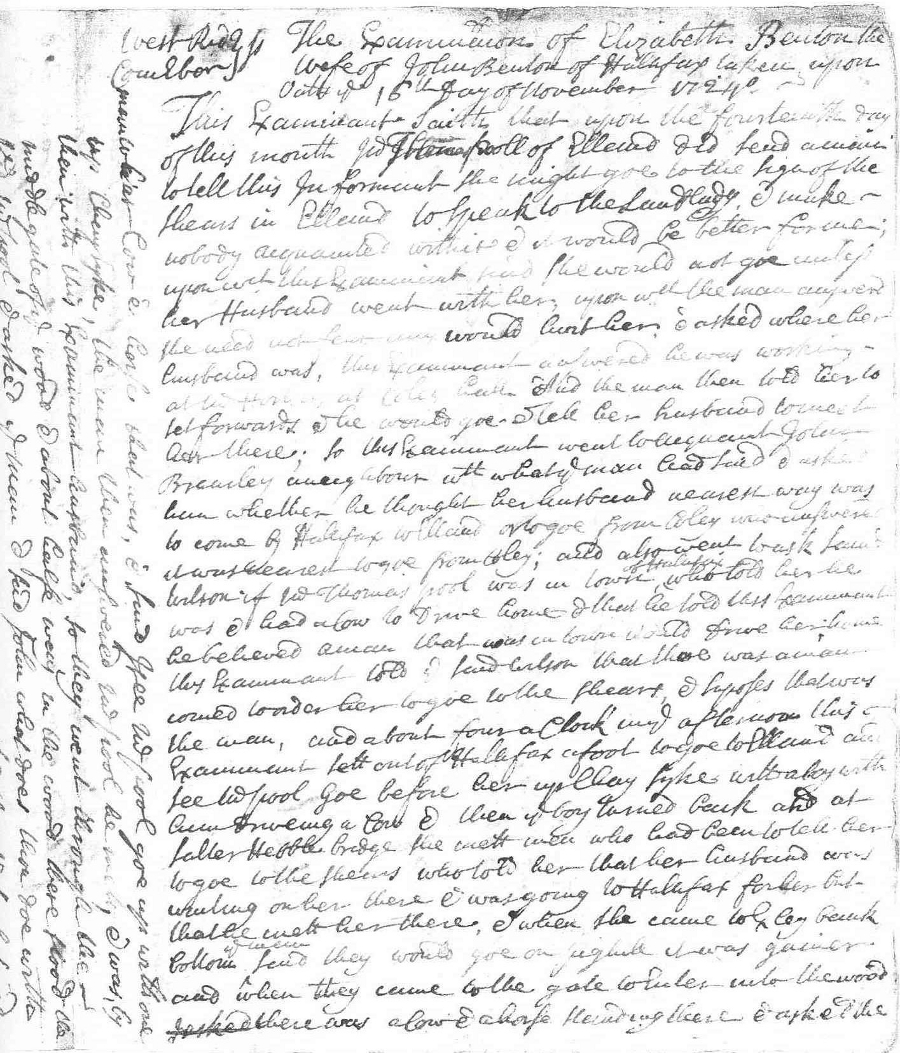 West Rid
Com Ebor
The Examination of Elizabeth Benton the
Wife of John Benton of Halifax taken upon
Oath ye 16th Day of November 1724.
This Examinant Saith that upon the fourteenth day
of this month Jno pooll of Elland did send a man
to tell this Informant she might goe to the Sign of the
Shears in Elland to Speak to the Landlady, & make
nobody acquainted with it & it would be better for me;
upon wch this Examinant said she would not goe unless
her Husband went with her, upon wch the man answered
she need not fear any would hurt her. & asked where her
husband was, this Examinant answered he was working
at at Coley hall And the man then told her to
set forwards & he would goe & tell her husband to meet
her there; So this Examinant went to acquant John
Bramley a neighbour wth what ye man had said & asked
him whether he thought her husband nearest way was
to come by Halifax to Elland or to goe from Coley who answered
it was nearest to goe from Coley; and also went to ask Saml
Wilson if sd Thomas pool was in town of Halifax, who told her he
was & had a Cow to Drive home & that he told this Examinant
he believed a man that was in town would Drive her home
this Examinant told ye said Wilson that there was a man
comed to order her to goe to the Shears, & suposes that was
the man, and about four a Clock in ye afternoon this
Examinant sett out of Halifax afoot to goe to Elland and
see sd pool Goe before her up Chay Syke with a boy with
him driveing a Cow & then ye boy turned back and at
Salter Hebble bridge she mett men who had been to tell her
to goe to the Shears who told her that her husband was
waiting on her there & was going to Halifax for her but
that he mett her there, & when she came to Exley bank
bottom ye man said they would goe on it was gainer
and when they came to the gate to Enter into the wood
there was a Cow & a horse standing there & asked the
man whose Cow & horse that was, & said I see sd pool goe up with one
by Chay Syke, the man then answered sd pool he
then with this Examinant husband, so they went through the
middle gate of ye wood & about half way in the wood there stood the
sd pool & asked ye man & said John what does thou doe with